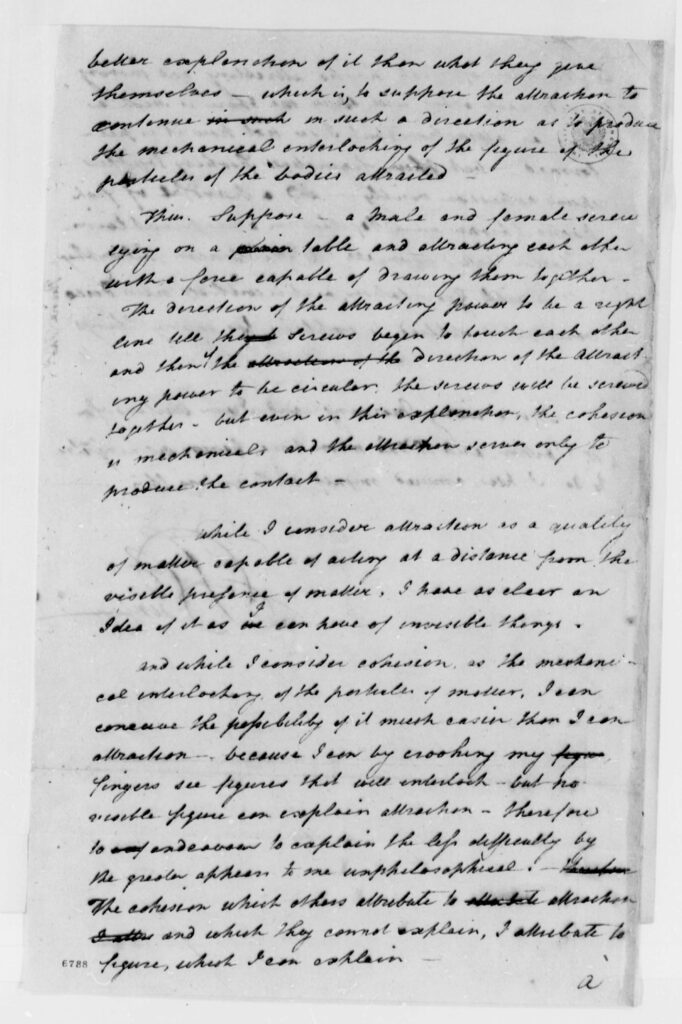 better explanation of it than what they give
themselves — which is, to suppose the attraction to
continue in such in such a direction as to produce
the mechanical interlocking of the figure of the
particles of the bodies attracted
Thus. Suppose — a male and female screw
lying on a plain table and attracting each other
with a force capable of drawing them together —
The direction of the attracting power to be a right
line till the screws begin to touch each other
and then the attraction of the direction of the attract-
ing power to be circular. the screws will be screwed
together — but even in this explanation, the cohesion
is mechanical, and the attraction serves only to
produce the contact —
While I consider attraction as a quality
of matter capable of acting at a distance from the
visible presence of matter. I have as clear an
Idea of it as I can have of invisible things.
and while I consider cohesion, as the mechani-
cal interlocking of the particles of matter, I can
conceive the possibility of it much easier than I can
attraction — because I can by crooking my
fingers see figures that will interlock — but no
visible figure can explain attraction — therefore
to endeavour to explain the less difficulty by
the greater appears to me unphilosophical. — therefore
The cohesion which others attribute to attribute attraction
and which they cannot explain, I attribute to
figure, which I can explain —
6788
a